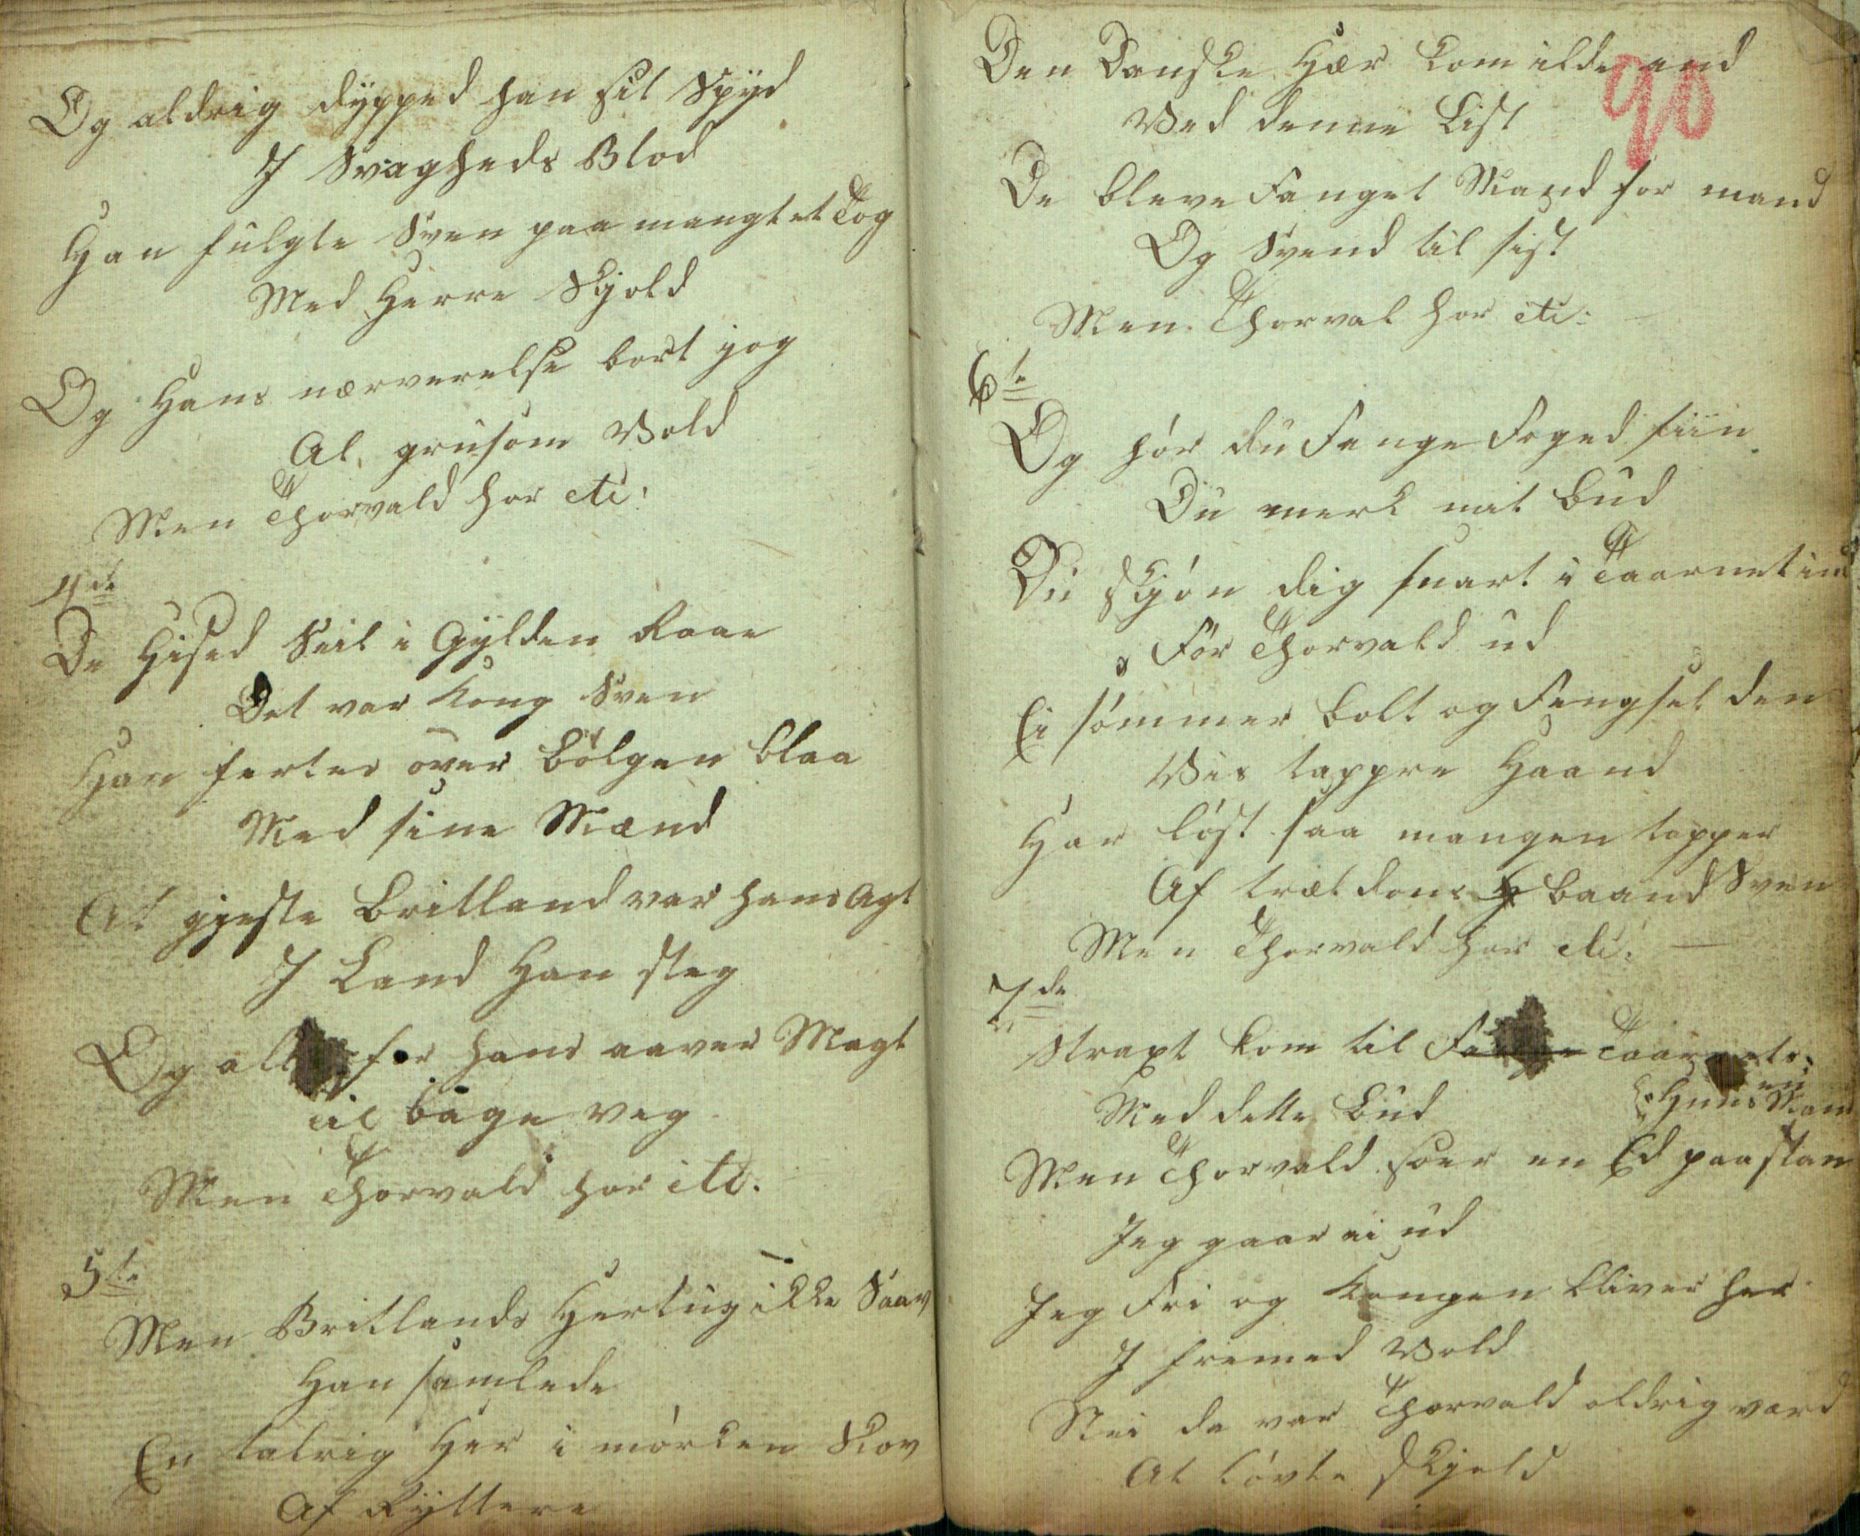 Og aldrig dypped han sit Spyd
I Svagheds Blod
Han fulgte Sven paa mangt et Tog
Med Herre Skjold
Og Hans nærverelse bort jog
Al grusom Vold
Men Thorvald har etc:
4de
De Hised Seil i Gylden Raae
Det var Kong Sven
Han farter over Bølgen blaa
Med sine Mænd
At gjeste Britland var hans Agt
I Land Han steg
Og alt for hans aaver Magt
til bage veg
Men Thorvald har etc:
5te
Men Britlands Hertug ikke Saav
Han samlede
En talrig Hær i mørken Skov
Af Ryttere
90
Den Danske Hær kom ilde and
Ved denne List
De bleve Fanget Mand for mand
Og Svend til sist
Men Thorval har etc:
6te
Og hør du Fange Foged siin
Du merk mit bud
Du skjøn dig snart i Taarnet ind
Før Thorvald ud
Ei sømmer bolt og Fengsel den
Vis tappre Haand
Har løst saa mangen tapper
Sven
Af trældoms baand
Men Thorvald har etc:
7de
Straxt kom til Taarnets
en
Huns Mand
Med dette Bud
Men Thorvald soer en Ed paa stan
Jeg gaar ei ud
Jeg Fri og Kongen bliver her
I fremed Vold
Nei da var Thorvald aldrig værd
At løvte Skjold